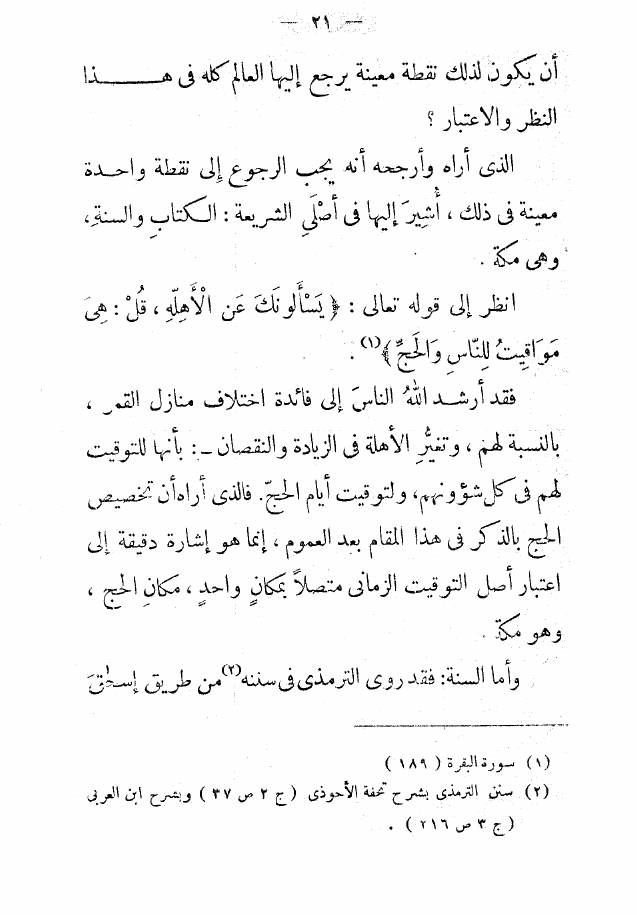 — ٢١ —
أن يكون لذلك نقطة معينة يرجع إليها العالم كله فى هـــــذا
النظر والاعتبار ؟
الذى أراه وأرجحه أنه يجب الرجوع إلى نقطة واحدة
معينة فى ذلك ، أُشِيرَ إليها فى أصْلَىِ الشريعة : الكتابِ والسنةِ ،
وهى مكة .
انظر إلى قوله تعالى : ﴿ يَسْأَلُونَكَ عَنِ الْأَهِلَّةِ ، قُلْ : هِىَ
مَوَاقِيتُ لِلنَّاسِ وَالْحَجِّ ﴾(١) .
فقد أرشـد اللهُ الناسَ إلى فائدة اختلاف منازل القمر ،
بالنسبة لهم ، وتغيُّرِ الأهلة فى الزيادة والنقصان ــ : بأنها للتوقيت
لهم فى كل شؤونهم، ولتوقيت أيام الحجّ. فالذى أراه أن تخصيص
الحج بالذكر فى هذا المقام بعد العموم ، إنما هو إشارة دقيقة إلى
اعتبار أصل التوقيت الزمانى متصلاً بمكانٍ واحدٍ ، مكانِ الحج ،
وهو مكة .
وأما السنة: فقد روى الترمذى فى سننه(٢) من طريق إسحٰقَ
(١) سورة البقرة ( ١٨٩ )
(٢) سنن الترمذى بشرح تحفة الأحوذى ( ج ٢ ص ٣٧ ) وبشرح ابن العربى
( ج ٣ ص ٢١٦ ) .